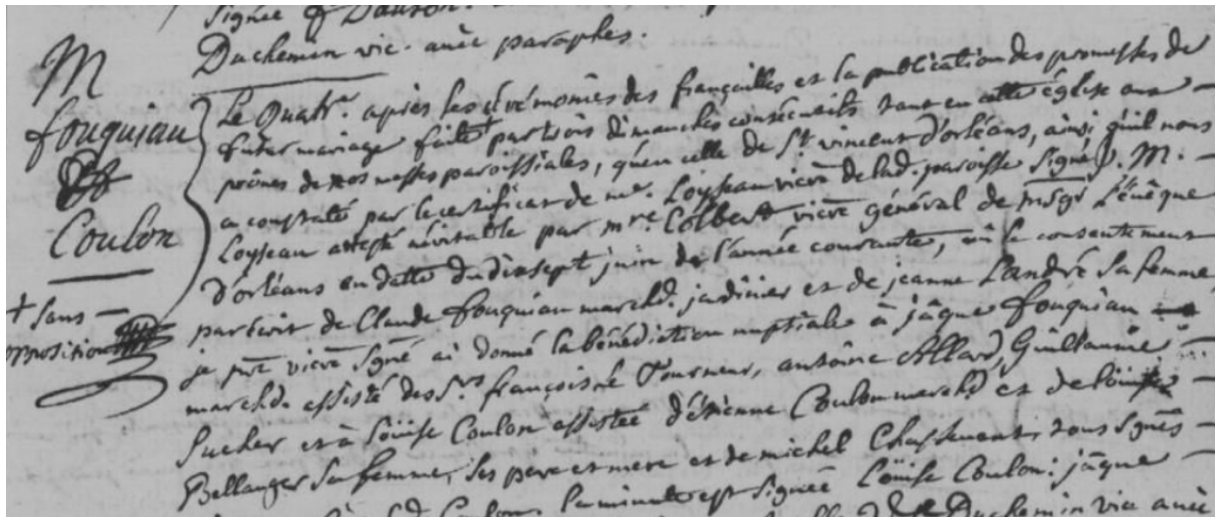 signée
Duchemin vic. avec paraphes.
M
fouquiau
&
Coulon
+ sans
opposition
Le quatr. après les cérémonies des françailles et la publication des promesses de
futur mariage faitte par trois dimanches consécutifs tant en cette église aux
prônes de nos messes paroissiales, qu'en celle de St. vincent d'orléans, ainsi qu'il nous
a constaté par le certificat de mr. Loyseau vicre de lad. paroisse signé J. M.
Loyseau attesté véritable par mre Colbert vicre général de msgr L'évêque
d'orléans en datte du dixsept juin de l'année courante, vû le consentement
par écrit de Claude fouquiau marchd. jardinier et de jeanne Landré sa femme,
je prre vicre sgné ai donné la bénédiction nuptiale à jâque fouquiau
marchd. assisté des Srs. françois le Tourneur, antoine Allard, Guillaume
sucher et à Loüise Coulon assistée d'étienne Coulon marchd et de loüise
Bellanger sa femme, ses pere et mere et de michel tous sgnés
Coulon la minute est signée Loüise Coulon: jâque
Duchemin vice avec